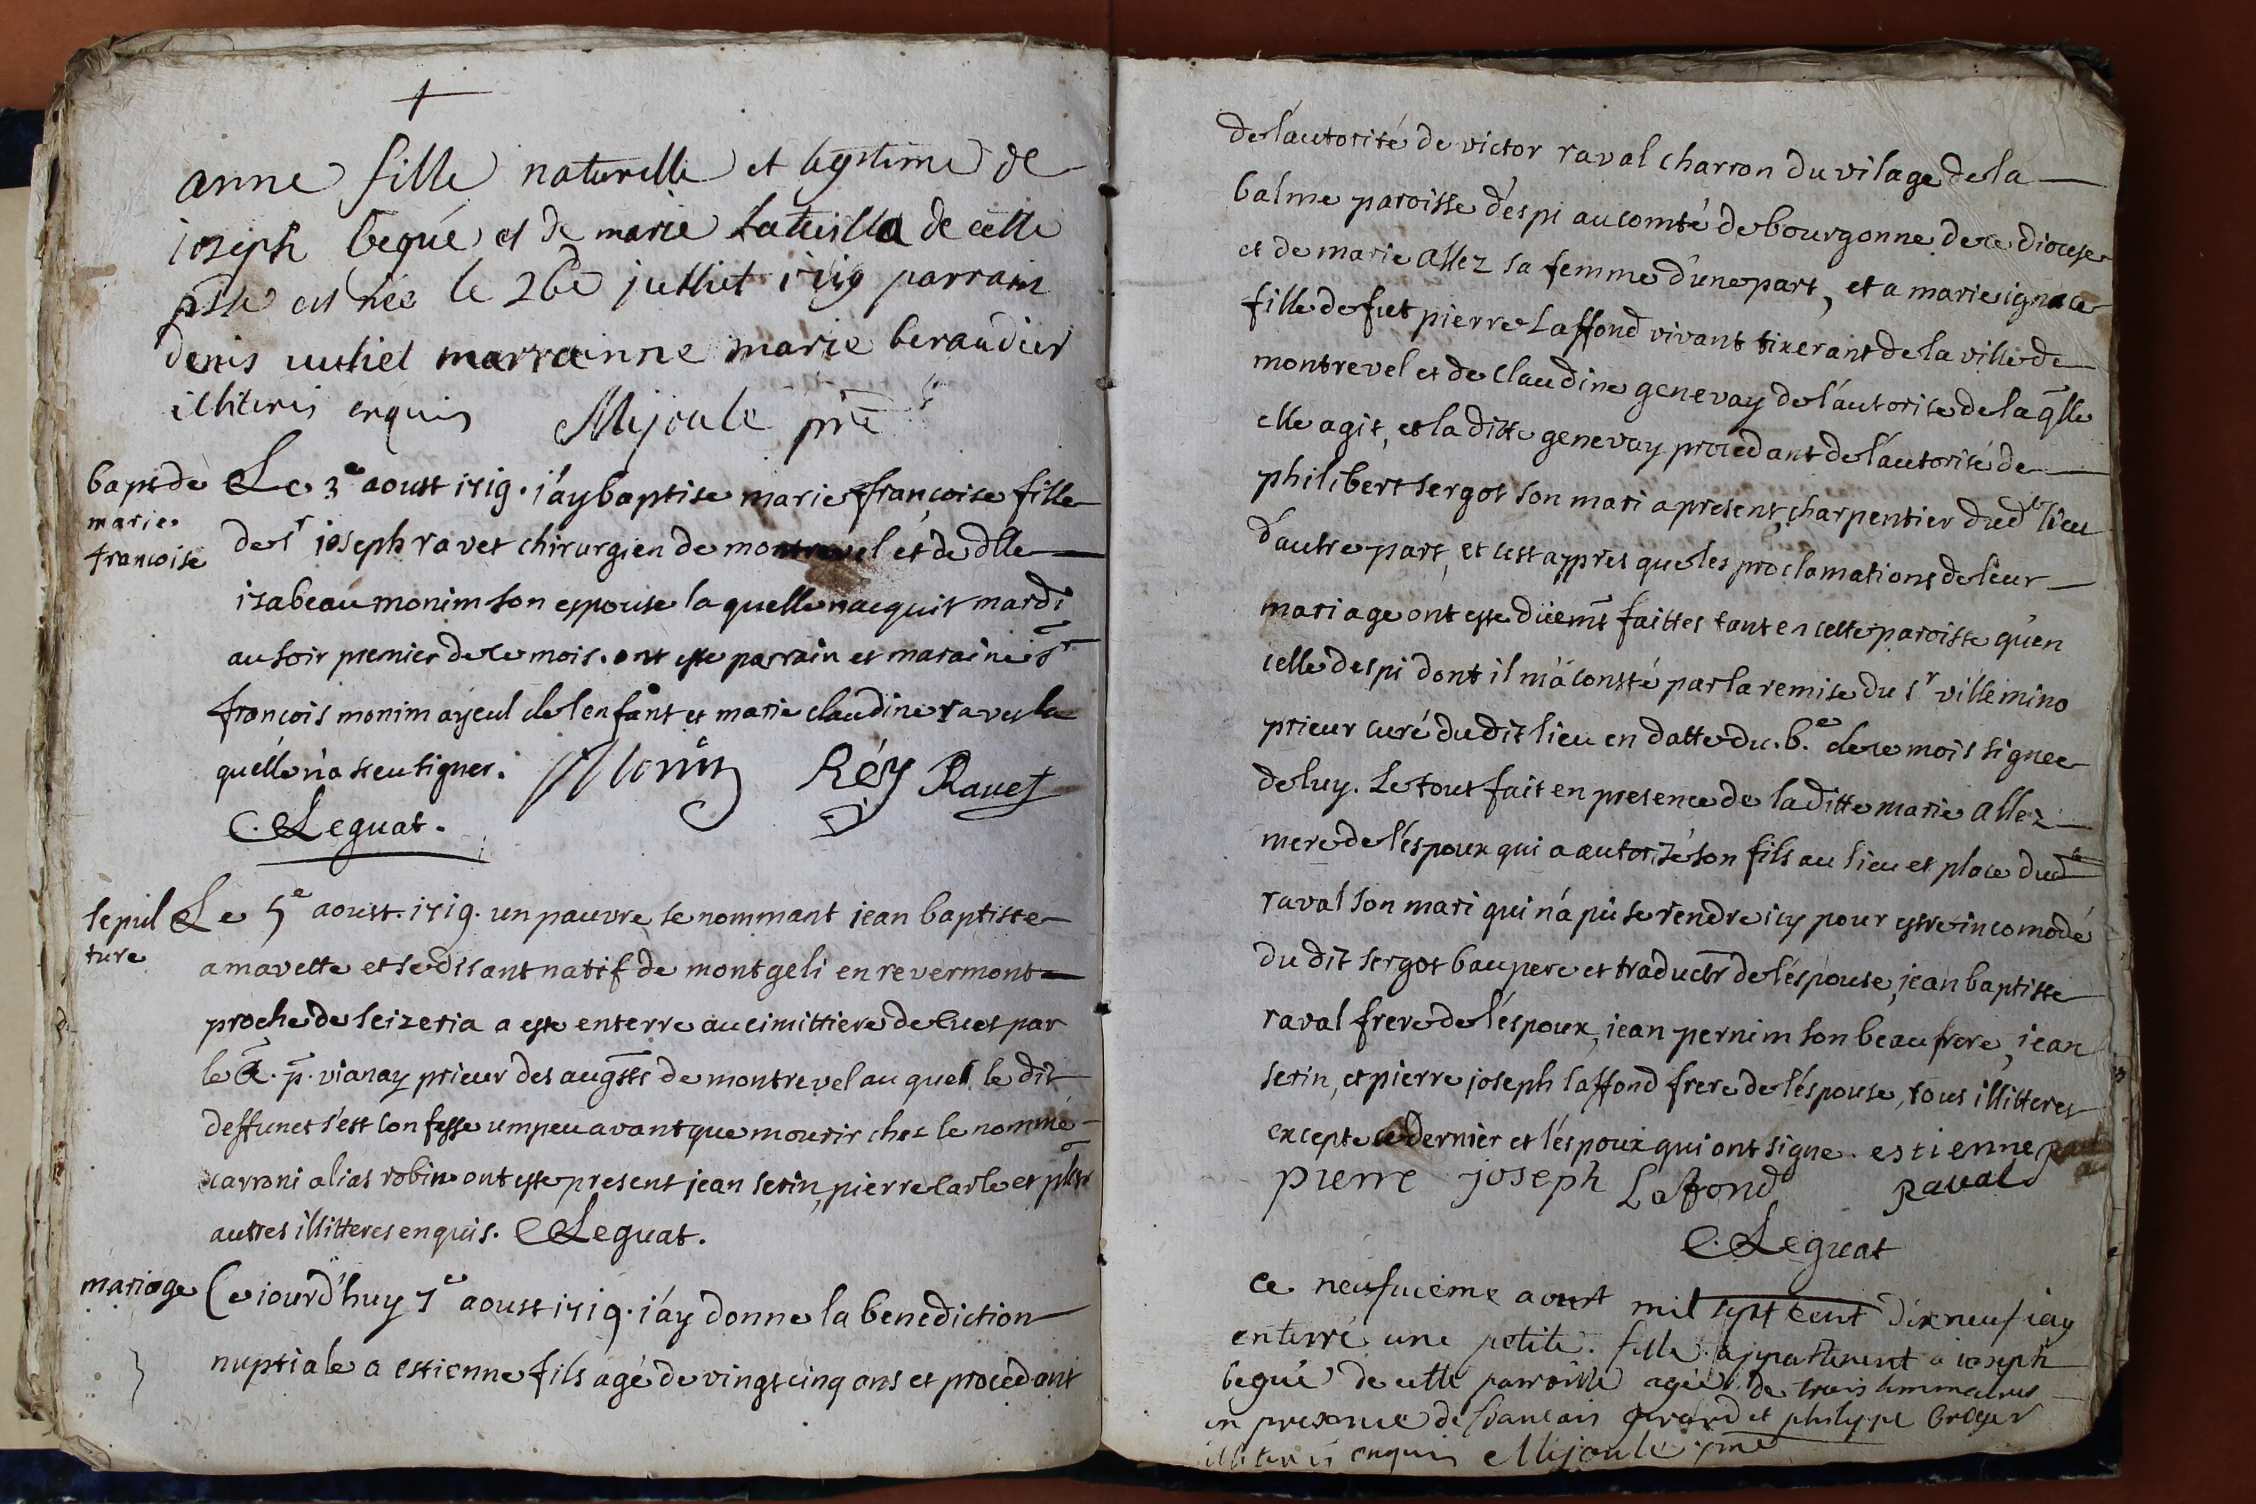 anne fille naturelle et legitime de
joseph begué et de marie de cette
psse est née le 26e julliet 1719 parrain
denis marrainne marie beraudier
illiteris enquis Mijoule pre
bapt de
marie
francoise
Le 3e aoust 1719. j'ay baptise marie françoise fille
de sr joseph ravet chirurgien de montrevel et de dlle
izabeau monim son espouse la quelle nacquit mardi
au soir premier de ce mois. ont este parrain et maraine sr
francois monim ayeul de lenfant et marie claudine ravet la
quelle n'a sceu signer. Monin Réy Ravet
C. Leguat.
sepul
ture
Le 5e aoust. 1719. un pauvre se nommant jean baptiste
amavette et se disant natif de montgeli en revermont
proche de seizeria a este enterre au cimittiere de cuet par
le R. p. vianay prieur des augsts de montrevel au quel le dit
deffunct s'est confesse um peu avant que mourir chez le nommé
carroni alias robin ont este present jean serin, pierre carle et plsrs
autres illitteres enquis. C Leguat.
mariage
Ce iourd'huy 7e aoust 1719. j'ay donne la benediction
nuptiale a estienne fils agé de vingt cinq ans et procedant
de l'autorité de victor raval charron du vilage de la
balme paroisse d'espi au comté de bourgonne de ce diocese
et de marie allez sa femme d'une part, et a marie ignace
fille de fut pierre Laffond vivant tixerant de la ville de
montrevel et de claudine genevay de l'autorite de la qlle
elle agit, et la ditte genevay procedant de l'autorité de
philibert sergot son mari a present charpentier dudt lieu
d'autre part, et c'est appres que les proclamations de leur
mariage ont este düemt faittes tant en cette paroisse qu'en
celle despi dont il m'a consté par la remise du sr villemino
prieur curé du dit lieu en datte du. 6.e de ce mois signee
de luy. Le tout fait en presence de la ditte marie allez
mere de l'espoux qui a autorisé son fils au lieu et place dudt
raval son mari qui n'a pu se rendre icy pour estre incomodé
du dit sergot baupere et traductr de l'espouse, jean baptiste
raval frere de l'espoux, jean pernim son beau frere, jean
serin, et pierre joseph laffond frere de l'espouse, tous illitteres
excepte ce dernier et l'espoux qui ont signe. estienne
pierre joseph Lafond raval
C. Leguat
ce neufuieme aoust mil sept cent dix neuf iay
enterré une petite fille appartenent a ioseph
begué de cette parroisse agée de trois semmaines
en presence de francois girard et philippe broyer
illiteris enquis Mijoule pre